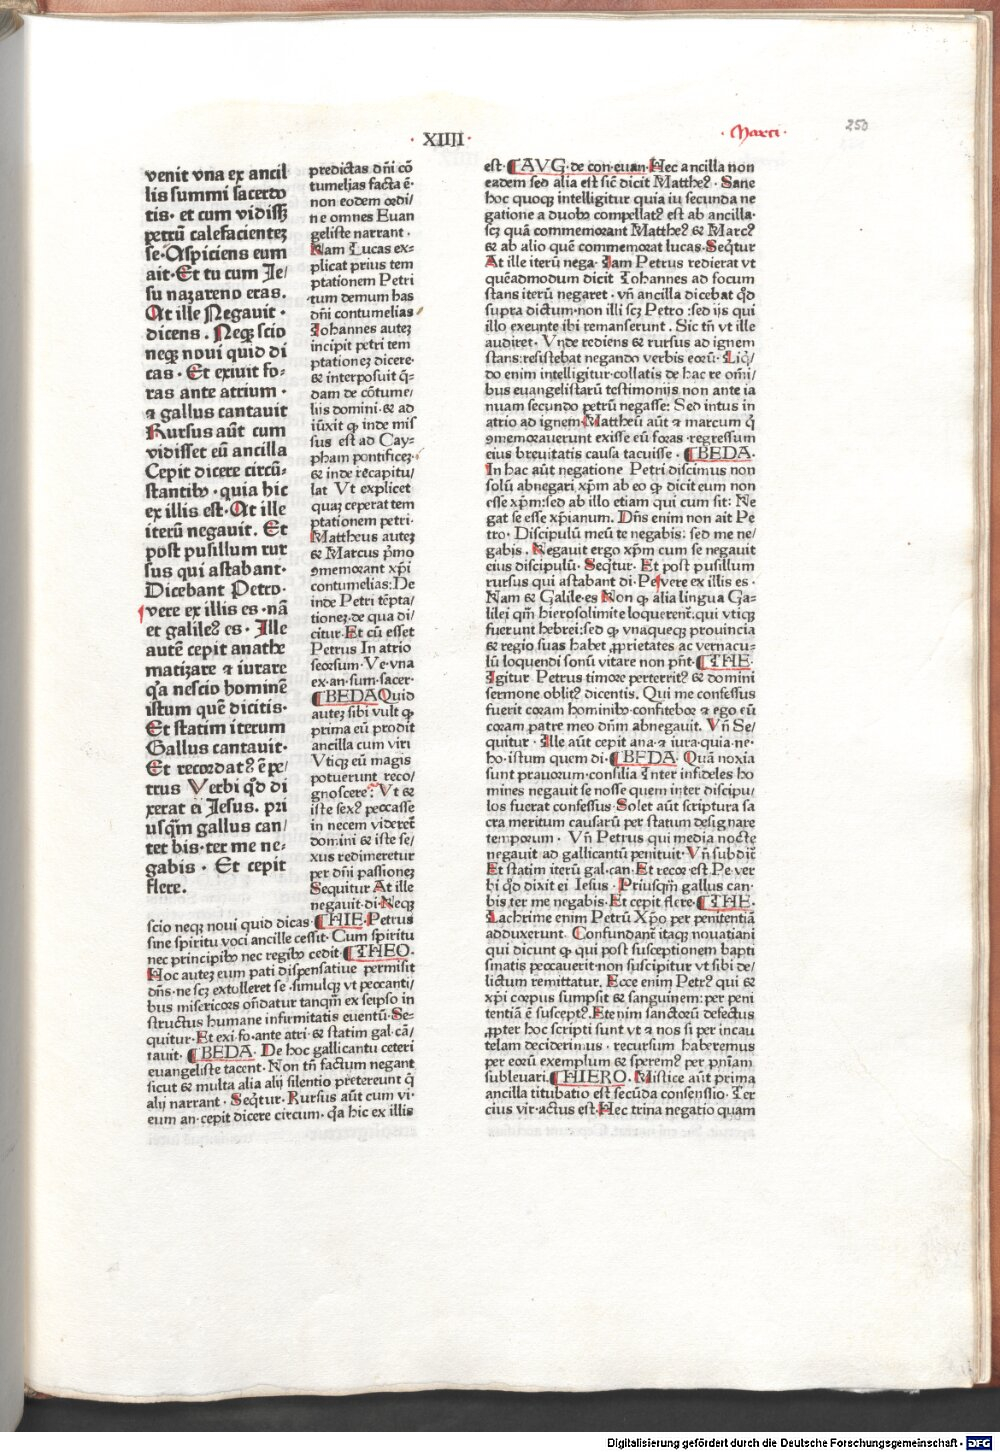 · XIIII ·
· Marci ·
250
venit vna ex ancil
lis summi sacerdo
tis· et cum vidissȝ
petrū calefacientez
se·Aspiciens eum
ait·Et tu cum Ie/
su nazareno eras.
At ille Negauit·
dicens. Neqȝ scio
neqȝ noui quid di
cas·Et exiuit fo-
ras ante atrium·
⁊ gallus cantauit
Rursus aūt cum
vidisset eū ancilla
Cepit dicere circū-
stantibꝰ·quia hic
ex illis est·At ille
iterū negauit. Et
post pusillum rur
sus qui astabant·
Dicebant Petro·
vere ex illis es·nā
et galileꝰ es·Ille
autē cepit anathe
matizare ⁊ iurare
qꝛa nescio hominē
istum quē dicitis·
Et statim iterum
Gallus cantauit·
Et recordatꝰ ē pe/
trus Verbi qd̄ di
xerat ei Iesus. pri
usqm̄ gallus can/
tet bis·ter me ne-
gabis· Et cepit
flere.
predictas dn̄i cō
tumelias facta ē·
non eodem ordi/
ne omnes Euan
geliste narrant.
Nam Lucas ex-
plicat prius tem
ptationem Petri
tum demum has
dn̄i contumelias
Iohannes autez
incipit petri tem
ptationez dicere·
& interposuit q̄-
dam de cōtume/
liis domini·& ad
iūxit ꝙ inde mis
sus est ad Cay-
pham pontificez·
& inde recapitu/
lat Vt explicet
quaz ceperat tem
ptationem petri·
Mattheus autez
& Marcus p̄mo
ꝯmemorant xp̄i
contumelias:De
inde Petri tēpta/
tionez·de qua di/
citur·Et cū esset
Petrus In atrio
seorsum·Ve·vna
ex·an·sum·sacer·
BEDA Quid
autez sibi vult ꝙ
prima eū prodit
ancilla cum viri
Vtiqȝ eū magis
potuerunt reco/
gnoscere? Vt &
iste sexꝰ peccasse
in necem videret̄
domini & iste se/
xus redimeretur
per dn̄i passionez
Sequitur At ille
negauit·di·Neqȝ
scio neqȝ noui quid dicas·HIE·Petrus
sine spiritu voci ancille cessit·Cum spiritu
nec principibꝰ nec regibꝰ cedit·THEO·
Hoc autez eum pati dispensatiue permisit
dn̄s·ne scȝ extolleret se·simulqȝ vt peccanti/
bus misericors ondatur tanqm̄ ex seipso in
structus humane infirmitatis euentū·Se-
quitur·Et exi·fo·ante atri·& statim gal·cā/
tauit·BEDA·De hoc gallicantu ceteri
euangeliste tacent·Non tn̄ factum negant
sicut & multa alia alij silentio pretereunt q̄
alij narrant·Seqt̄ur·Rursus aūt cum vi·
eum an·cepit dicere circum·qꝛa hic ex illis
est·AVG·de con·euan·Hec ancilla non
eadem sed alia est sic̄ dicit Mattheꝰ·Sane
hoc quoqȝ intelligitur quia iu secunda ne
gatione a duobꝰ compellatꝰ est ab ancilla·
scȝ quā commemorant Mattheꝰ & Marcꝰ
& ab alio quē commemorat lucas·Seqt̄ur
At ille iterū nega·Iam Petrus redierat vt
quēadmodum dicit Iohannes ad focum
stans iterū negaret·vn̄ ancilla dicebat qd̄
supra dictum·non illi scȝ Petro:sed ijs qui
illo exeunte ibi remanserunt. Sic tn̄ vt ille
audiret·Vnde rediens & rursus ad ignem
stans:resistebat negando verbis eorū·Liq̄/
do enim intelligitur·collatis de hac re om̄i/
bus euangelistarū testimonijs non ante ia
nuam secundo petrū negasse: Sed intus in
atrio ad ignem·Mattheū aūt ⁊ marcum q̄
ꝯmemorauerunt exisse eū foras·regressum
eius breuitatis causa tacuisse·BEDA·
In hac aūt negatione Petri discimus non
solū abnegari xp̄m ab eo ꝙ dicit eum non
esse xp̄m:sed ab illo etiam qui cum sit: Ne
gat se esse xp̄ianum. Dn̄s enim non ait Pe
tro·Discipulū meū te negabis: sed me ne/
gabis. Negauit ergo xp̄m cum se negauit
eius discipulū·Seqt̄ur·Et post pusillum
rursus qui astabant di·Pe·vere ex illis es·
Nam & Galile·es Non ꝙ alia lingua Ga-
lilei qm̄ hierosolimite loquerent̄:qui vtiqȝ
fuerunt hebrei:sed ꝙ vnaqueqȝ prouincia
& regio suas habet ꝓprietates ac vernacu-
lū loquendi sonū vitare non pn̄t·THE·
Igitur Petrus timore perterritꝰ & domini
sermone oblitꝰ dicentis. Qui me confessus
fuerit coram hominibꝰ·confitebor ⁊ ego eū
coram patre meo dn̄m abnegauit. Vn̄ Se/
quitur·Ille aūt cepit ana·⁊ iura·quia·ne·
ho·istum quem di·BEDA·Quā noxia
sunt prauorum·consilia Inter infideles ho
mines negauit se nosse quem inter discipu/
los fuerat confessus·Solet aūt scriptura sa
cra meritum causarū per statum designare
temporum·Vn̄ Petrus qui media nocte
negauit ad gallicantū penituit·Vn̄ subdit̄
Et statim iterū gal·can·Et recor est·Pe ver
bi qd̄ dixit ei Iesus·Priusqm̄ gallus can·
bis ter me negabis·Et cepit flere·THE·
Lachrime enim Petrū Xp̄o per penitentiā
adduxerunt. Confundant̄ itaqȝ nouatiani
qui dicunt ꝙ qui post susceptionem bapti
smatis peccauerit·non suscipitur vt sibi de/
lictum remittatur. Ecce enim Petrꝰ qui &
xp̄i corpus sumpsit & sanguinem:per peni
tentiā ē susceptꝰ. Etenim sanctorū defectus
ꝓpter hoc scripti sunt vt ⁊ nos si per incau
telam deciderimus·recursum haberemus
per eorū exemplum & speremꝰ per pn̄iam
subleuari.HIERO·Mistice aūt prima
ancilla titubatio est secūda consensio·Ter
cius vir·actus est·Hec trina negatio quam
Digitalisierung gefördert durch die Deutsche Forschungsgemeinschaft · DFG